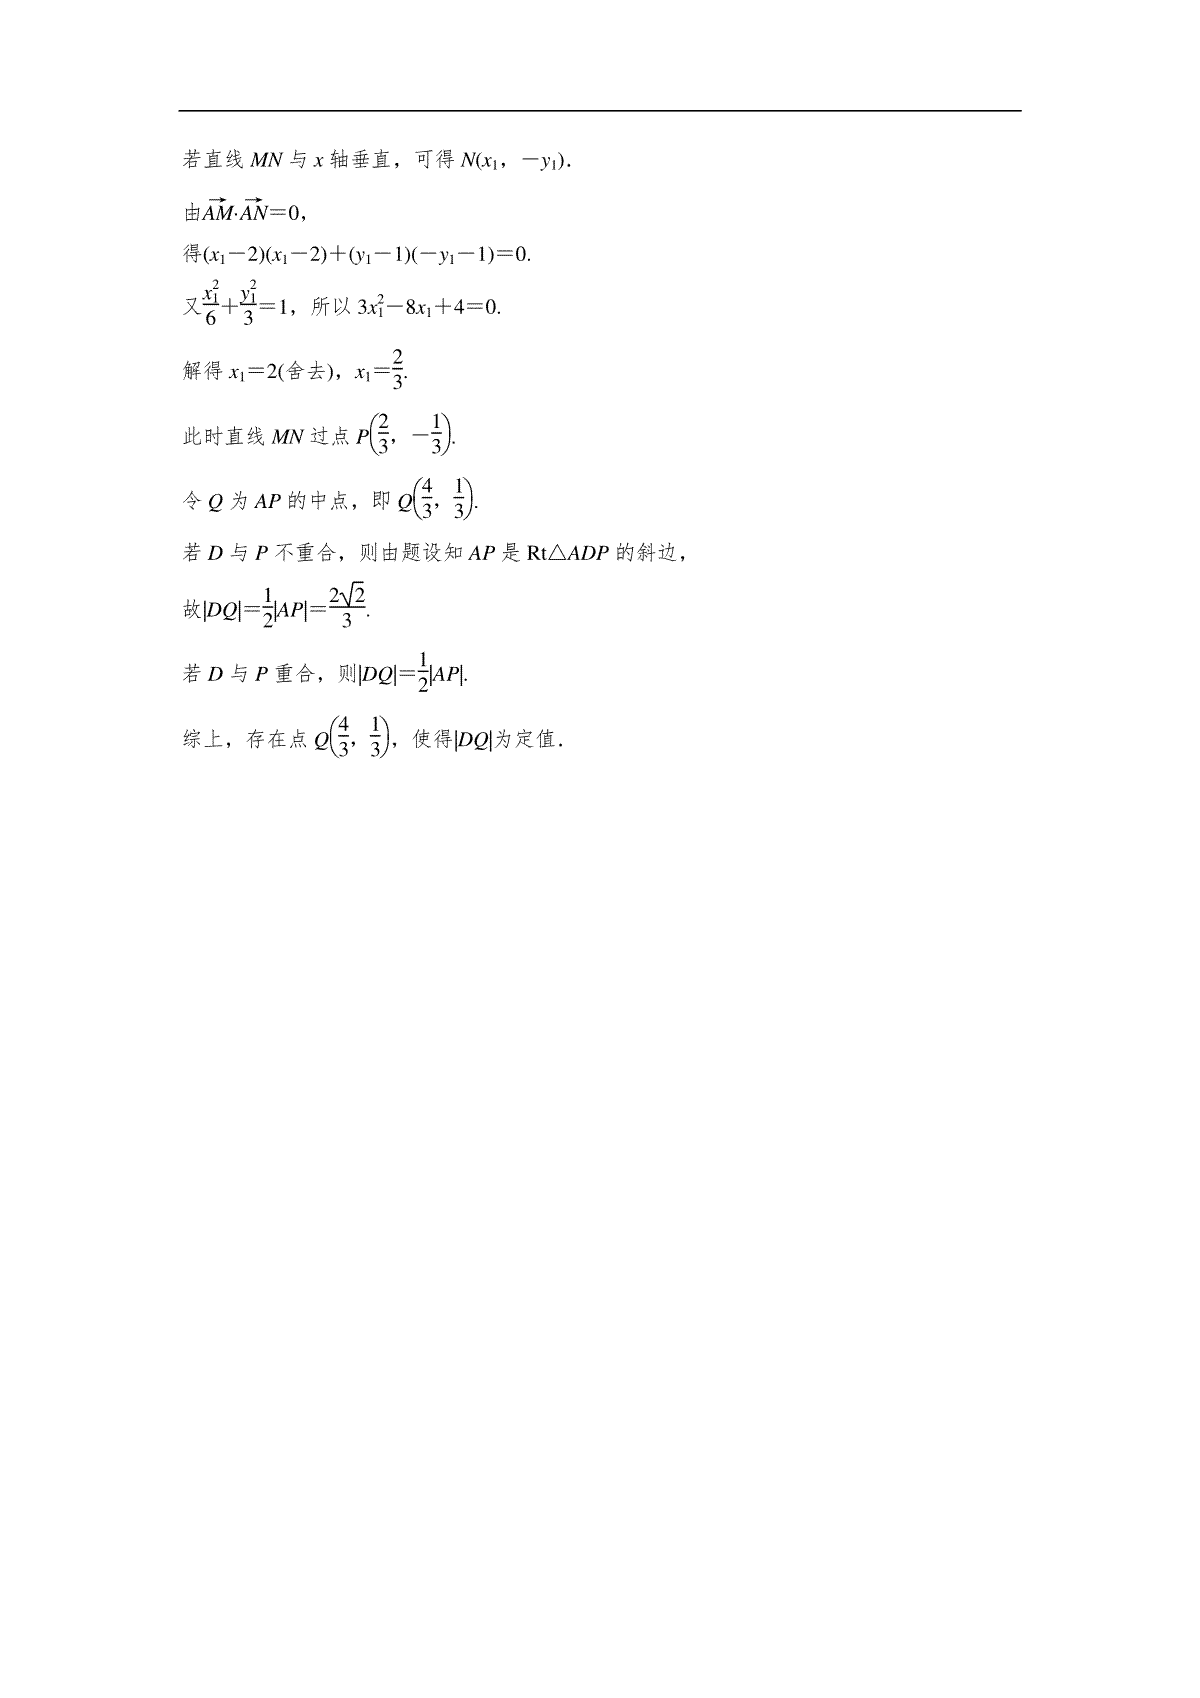 若直线 MN 与 x 轴垂直，可得 N(x₁，－y₁)．
由$\overrightarrow{AM}$·$\overrightarrow{AN}$＝0，
得(x₁－2)(x₁－2)＋(y₁－1)(－y₁－1)＝0.
又$\frac{x_1^2}{6}$＋$\frac{y_1^2}{3}$＝1，所以 3x$_1^2$－8x₁＋4＝0.
解得 x₁＝2(舍去)，x₁＝$\frac{2}{3}$.
此时直线 MN 过点 P$\left(\frac{2}{3}，－\frac{1}{3}\right)$.
令 Q 为 AP 的中点，即 Q$\left(\frac{4}{3}，\frac{1}{3}\right)$.
若 D 与 P 不重合，则由题设知 AP 是 Rt△ADP 的斜边，
故|DQ|＝$\frac{1}{2}$|AP|＝$\frac{2\sqrt{2}}{3}$.
若 D 与 P 重合，则|DQ|＝$\frac{1}{2}$|AP|.
综上，存在点 Q$\left(\frac{4}{3}，\frac{1}{3}\right)$，使得|DQ|为定值．